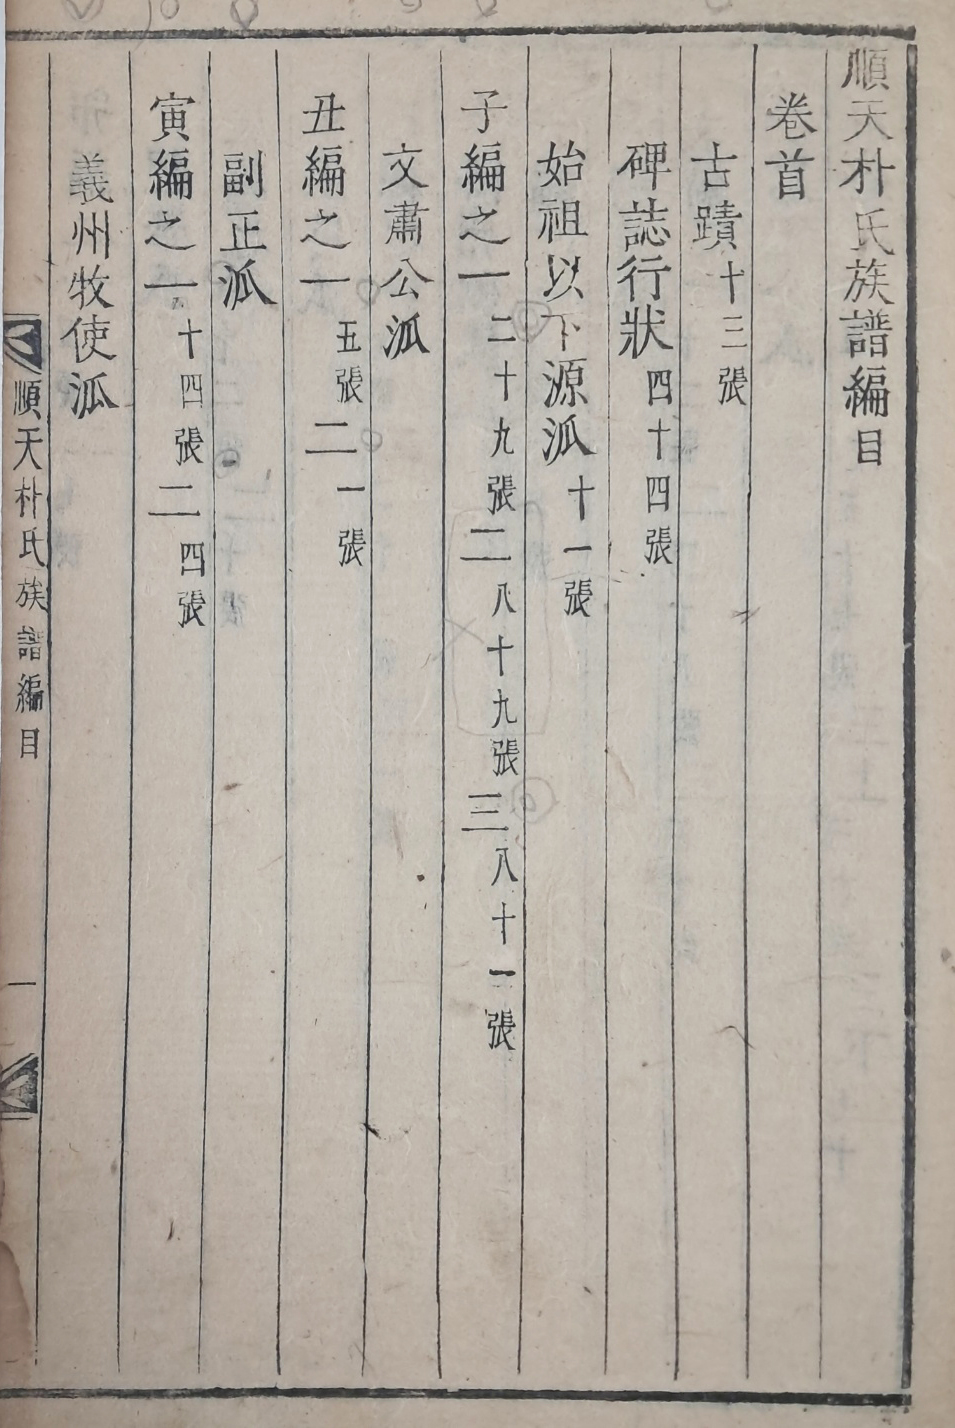 順天朴氏族譜編目
卷首
古蹟十三張
碑誌行狀四十四張
始祖以下源派十一張
子編之一二十九張二八十九張三八十一張
文肅公派
丑編之一五張二一張
副正派
寅編之一十四張二四張
義州牧使派
順天朴氏族譜編目 一